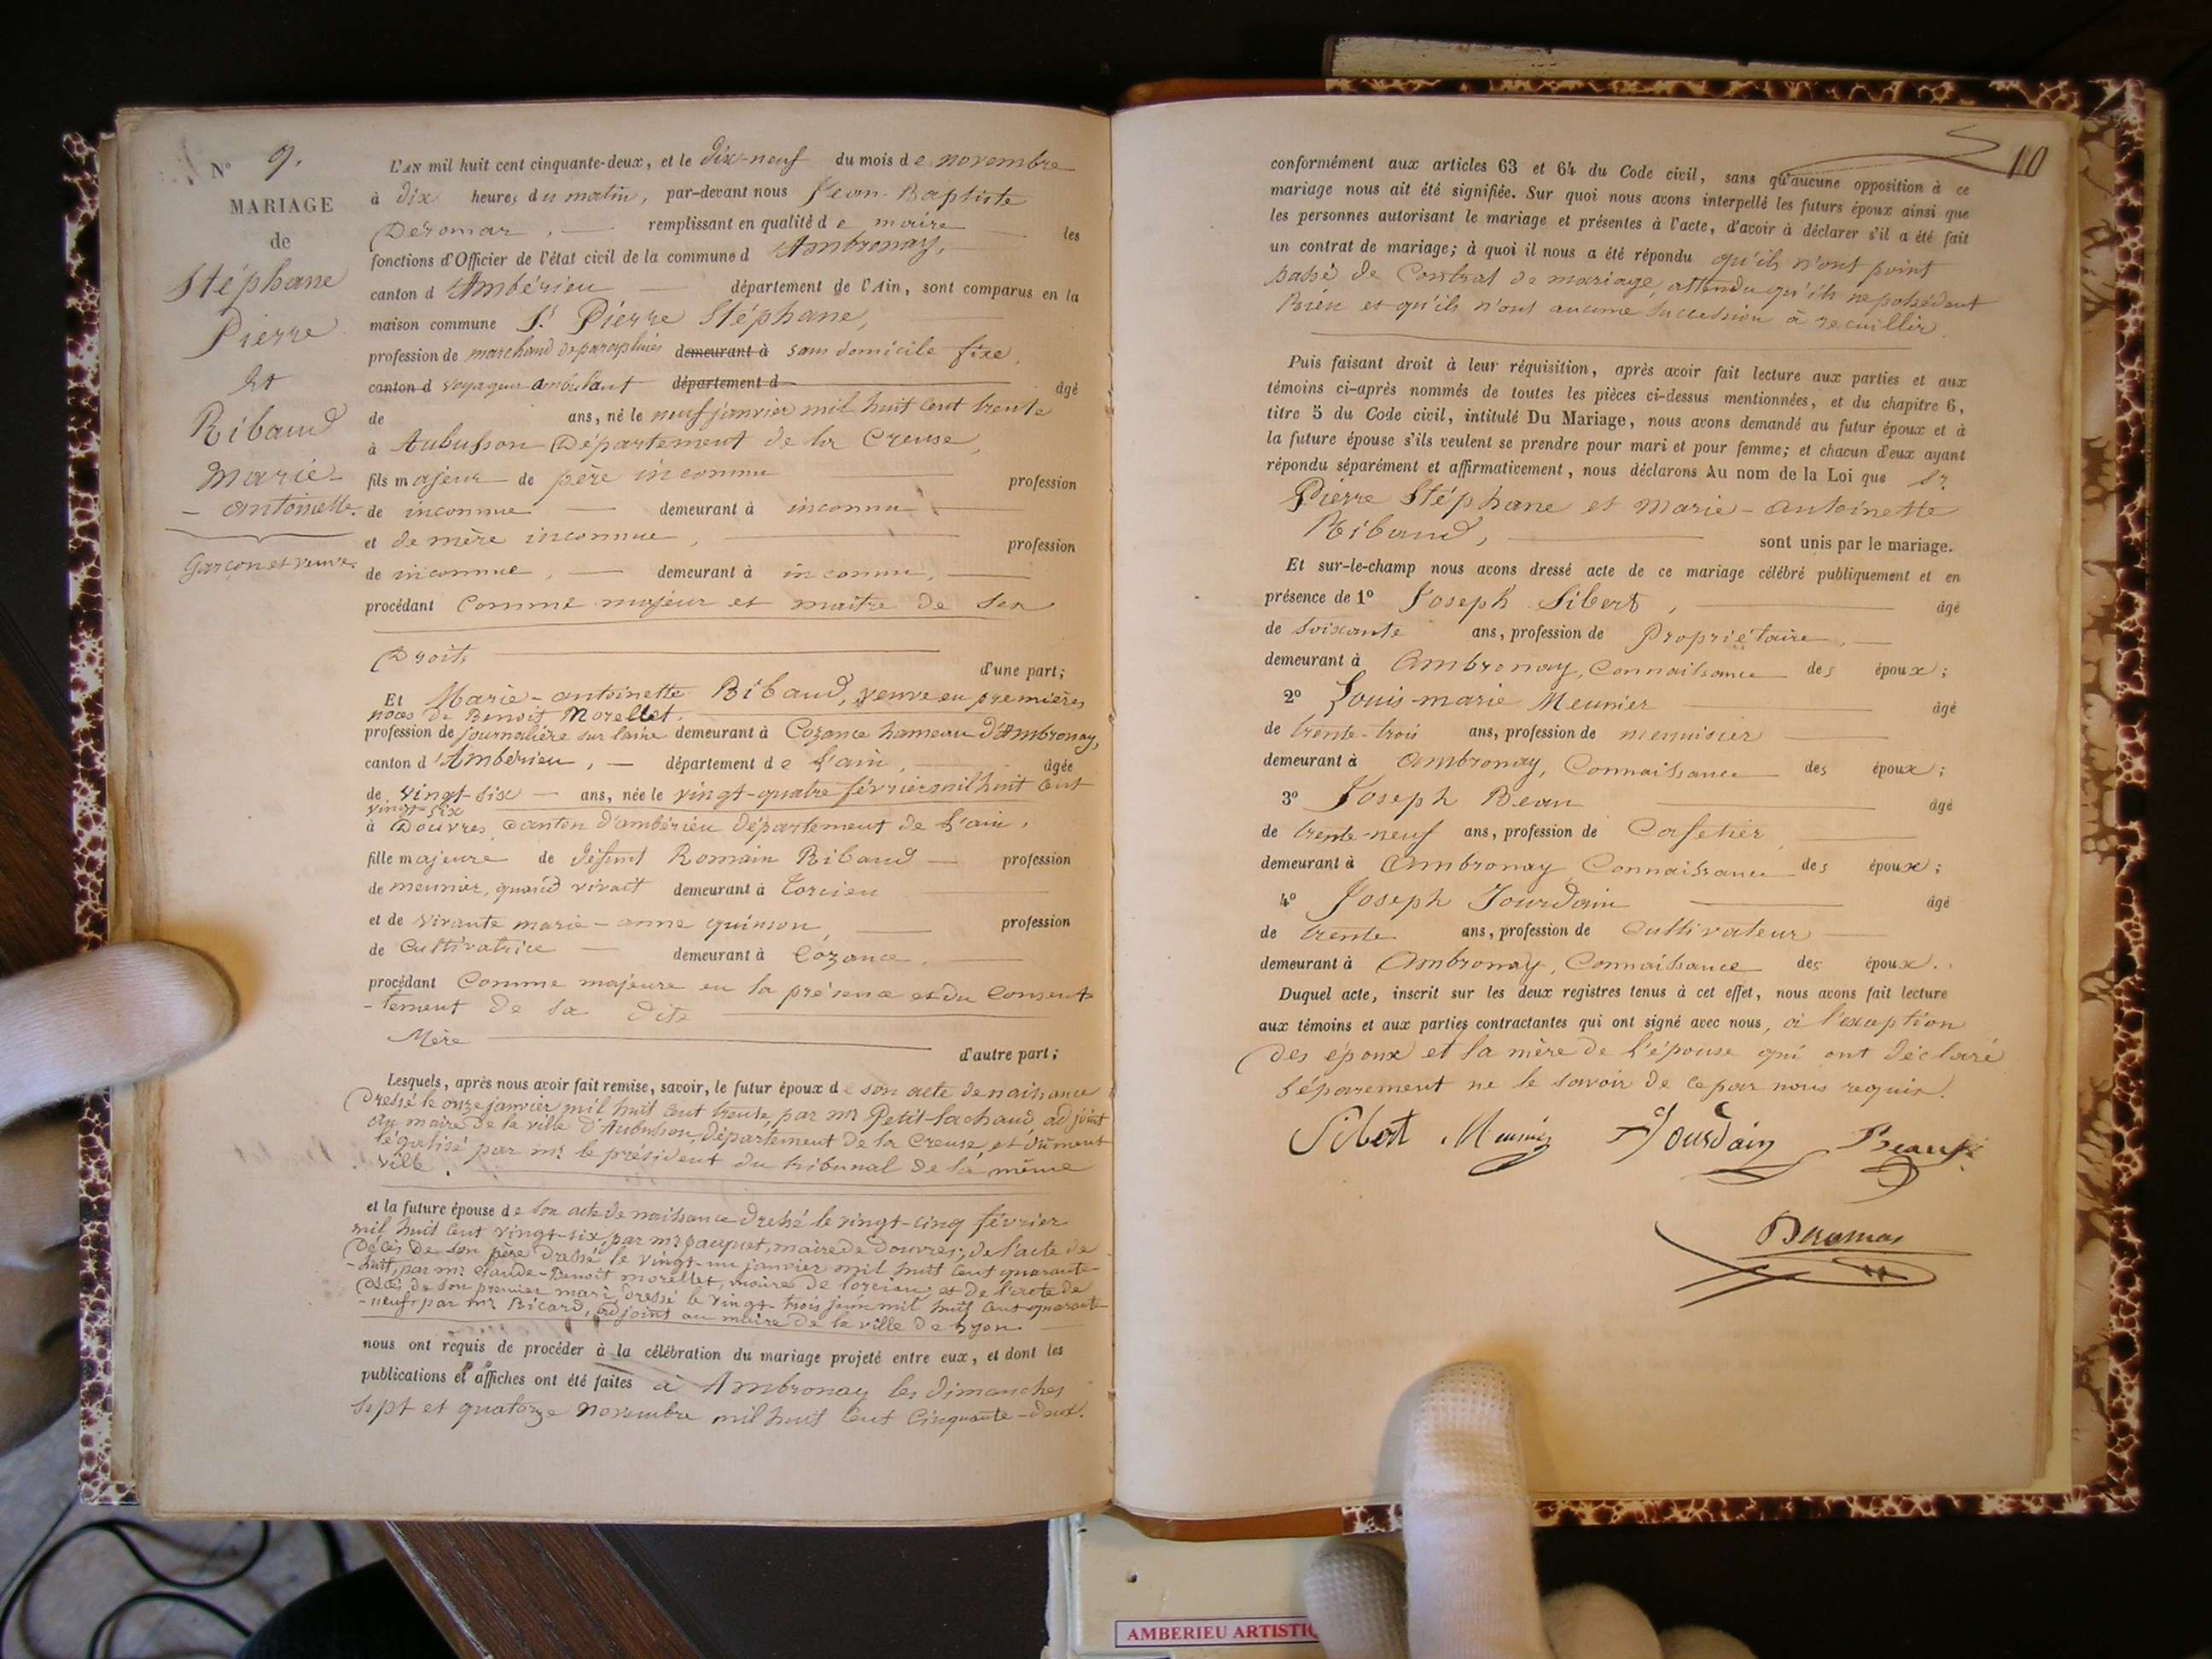 N° 9.
MARIAGE
de
Stéphane
Pierre
et
Ribaud
Marie-
- antoinette.
Garçon et veuve.
L'AN mil huit cent cinquante-deux, et le dix-neuf du mois de novembre
à dix heures du matin, par-devant nous Jean-Baptiste
Deromas, remplissant en qualité de maire les
fonctions d'Officier de l'état civil de la commune d'Ambronay,
canton d'Ambérieu département de l'Ain, sont comparus en la
maison commune Sr Pierre Stéphane,
profession de marchand de parapluies demeurant à sans domicile fixe,
canton d voyageur ambulant département d âgé
de ans, né le neuf janvier mil huit cent trente
à Aubusson Département de la Creuse,
fils majeur de père inconnu profession
de inconnue demeurant à inconnu
et de mère inconnue, profession
de inconnue, demeurant à inconnu,
procédant comme majeur et maître de ses
Droits d'une part;
Et Marie-antoinette Ribaud, veuve en premières
noces de Benoit Morellet.
profession de journalière sur laine demeurant à Cozance hameau d'Ambronay,
canton d'Ambérieu, département de l'ain, âgée
de vingt-six ans, née le vingt-quatre février mil huit cent
vingt-six
à Douvres canton d'ambérieu Département de l'ain,
fille majeure de défunt Romain Ribaud profession
de meunier, quand vivait demeurant à Torcieu
et de vivante marie-anne quinson, profession
de Cultivatrice demeurant à Cozance,
procédant Comme majeure en la présence et du Consen-
-tement de sa dite
Mère d'autre part;
Lesquels, après nous avoir fait remise, savoir, le futur époux de son acte de naissance
Dressé le onze janvier mil huit cent trente, par mr Petit-lachaud, adjoint
au maire de la ville d'Aubusson, département de la Creuse, et dûment
légalisé par mr le président du tribunal de la même
ville.
et la future épouse de son acte de naissance dressé le vingt-cinq février
mil huit cent vingt-six, par mr pauquet, maire de Douvres; de l'acte de
Décès de son père dressé le vingt-un janvier mil huit cent quarante-
-huit, par mr Claude-Benoit morellet, maire de Torcieu; et de l'acte de
décès de son premier mari dressé le vingt-trois juin mil huit cent quarante-
-neuf, par mr Bicard, adjoint au maire de la ville de Lyon.
nous ont requis de procéder à la célébration du mariage projeté entre eux, et dont les
publications et affiches ont été faites à Ambronay les dimanches
sept et quatorze novembre mil huit cent Cinquante-deux.
10
conformément aux articles 63 et 64 du Code civil, sans qu'aucune opposition à ce
mariage nous ait été signifiée. Sur quoi nous avons interpellé les futurs époux ainsi que
les personnes autorisant le mariage et présentes à l'acte, d'avoir à déclarer s'il a été fait
un contrat de mariage; à quoi il nous a été répondu qu'ils n'ont point
passé de Contrat de mariage, attendu qu'ils ne possèdent
Rien et qu'ils n'ont aucune succession à recueillir.
Puis faisant droit à leur réquisition, après avoir fait lecture aux parties et aux
témoins ci-après nommés de toutes les pièces ci-dessus mentionnées, et du chapitre 6,
titre 5 du Code civil, intitulé Du Mariage, nous avons demandé au futur époux et à
la future épouse s'ils veulent se prendre pour mari et pour femme; et chacun d'eux ayant
répondu séparément et affirmativement, nous déclarons Au nom de la Loi que Sr
Pierre Stéphane et Marie-Antoinette
Ribaud, sont unis par le mariage.
Et sur-le-champ nous avons dressé acte de ce mariage célébré publiquement et en
présence de 1° Joseph Sibert, âgé
de soixante ans, profession de Propriétaire,
demeurant à Ambronay, Connaissance des époux;
2° Louis-marie Meunier âgé
de trente-trois ans, profession de menuisier
demeurant à Ambronay, Connaissance des époux;
3° Joseph Beau âgé
de trente-neuf ans, profession de Cafetier,
demeurant à Ambronay Connaissance des époux;
4° Joseph Jourdain âgé
de trente ans, profession de Cultivateur
demeurant à Ambronay, Connaissance des époux.
Duquel acte, inscrit sur les deux registres tenus à cet effet, nous avons fait lecture
aux témoins et aux parties contractantes qui ont signé avec nous, à l'exception
des époux et la mère de l'épouse qui ont déclaré
séparement ne le savoir de ce par nous requis.
Sibert Meunier Jourdain Beau
Deromas
AMBERIEU ARTISTIQ